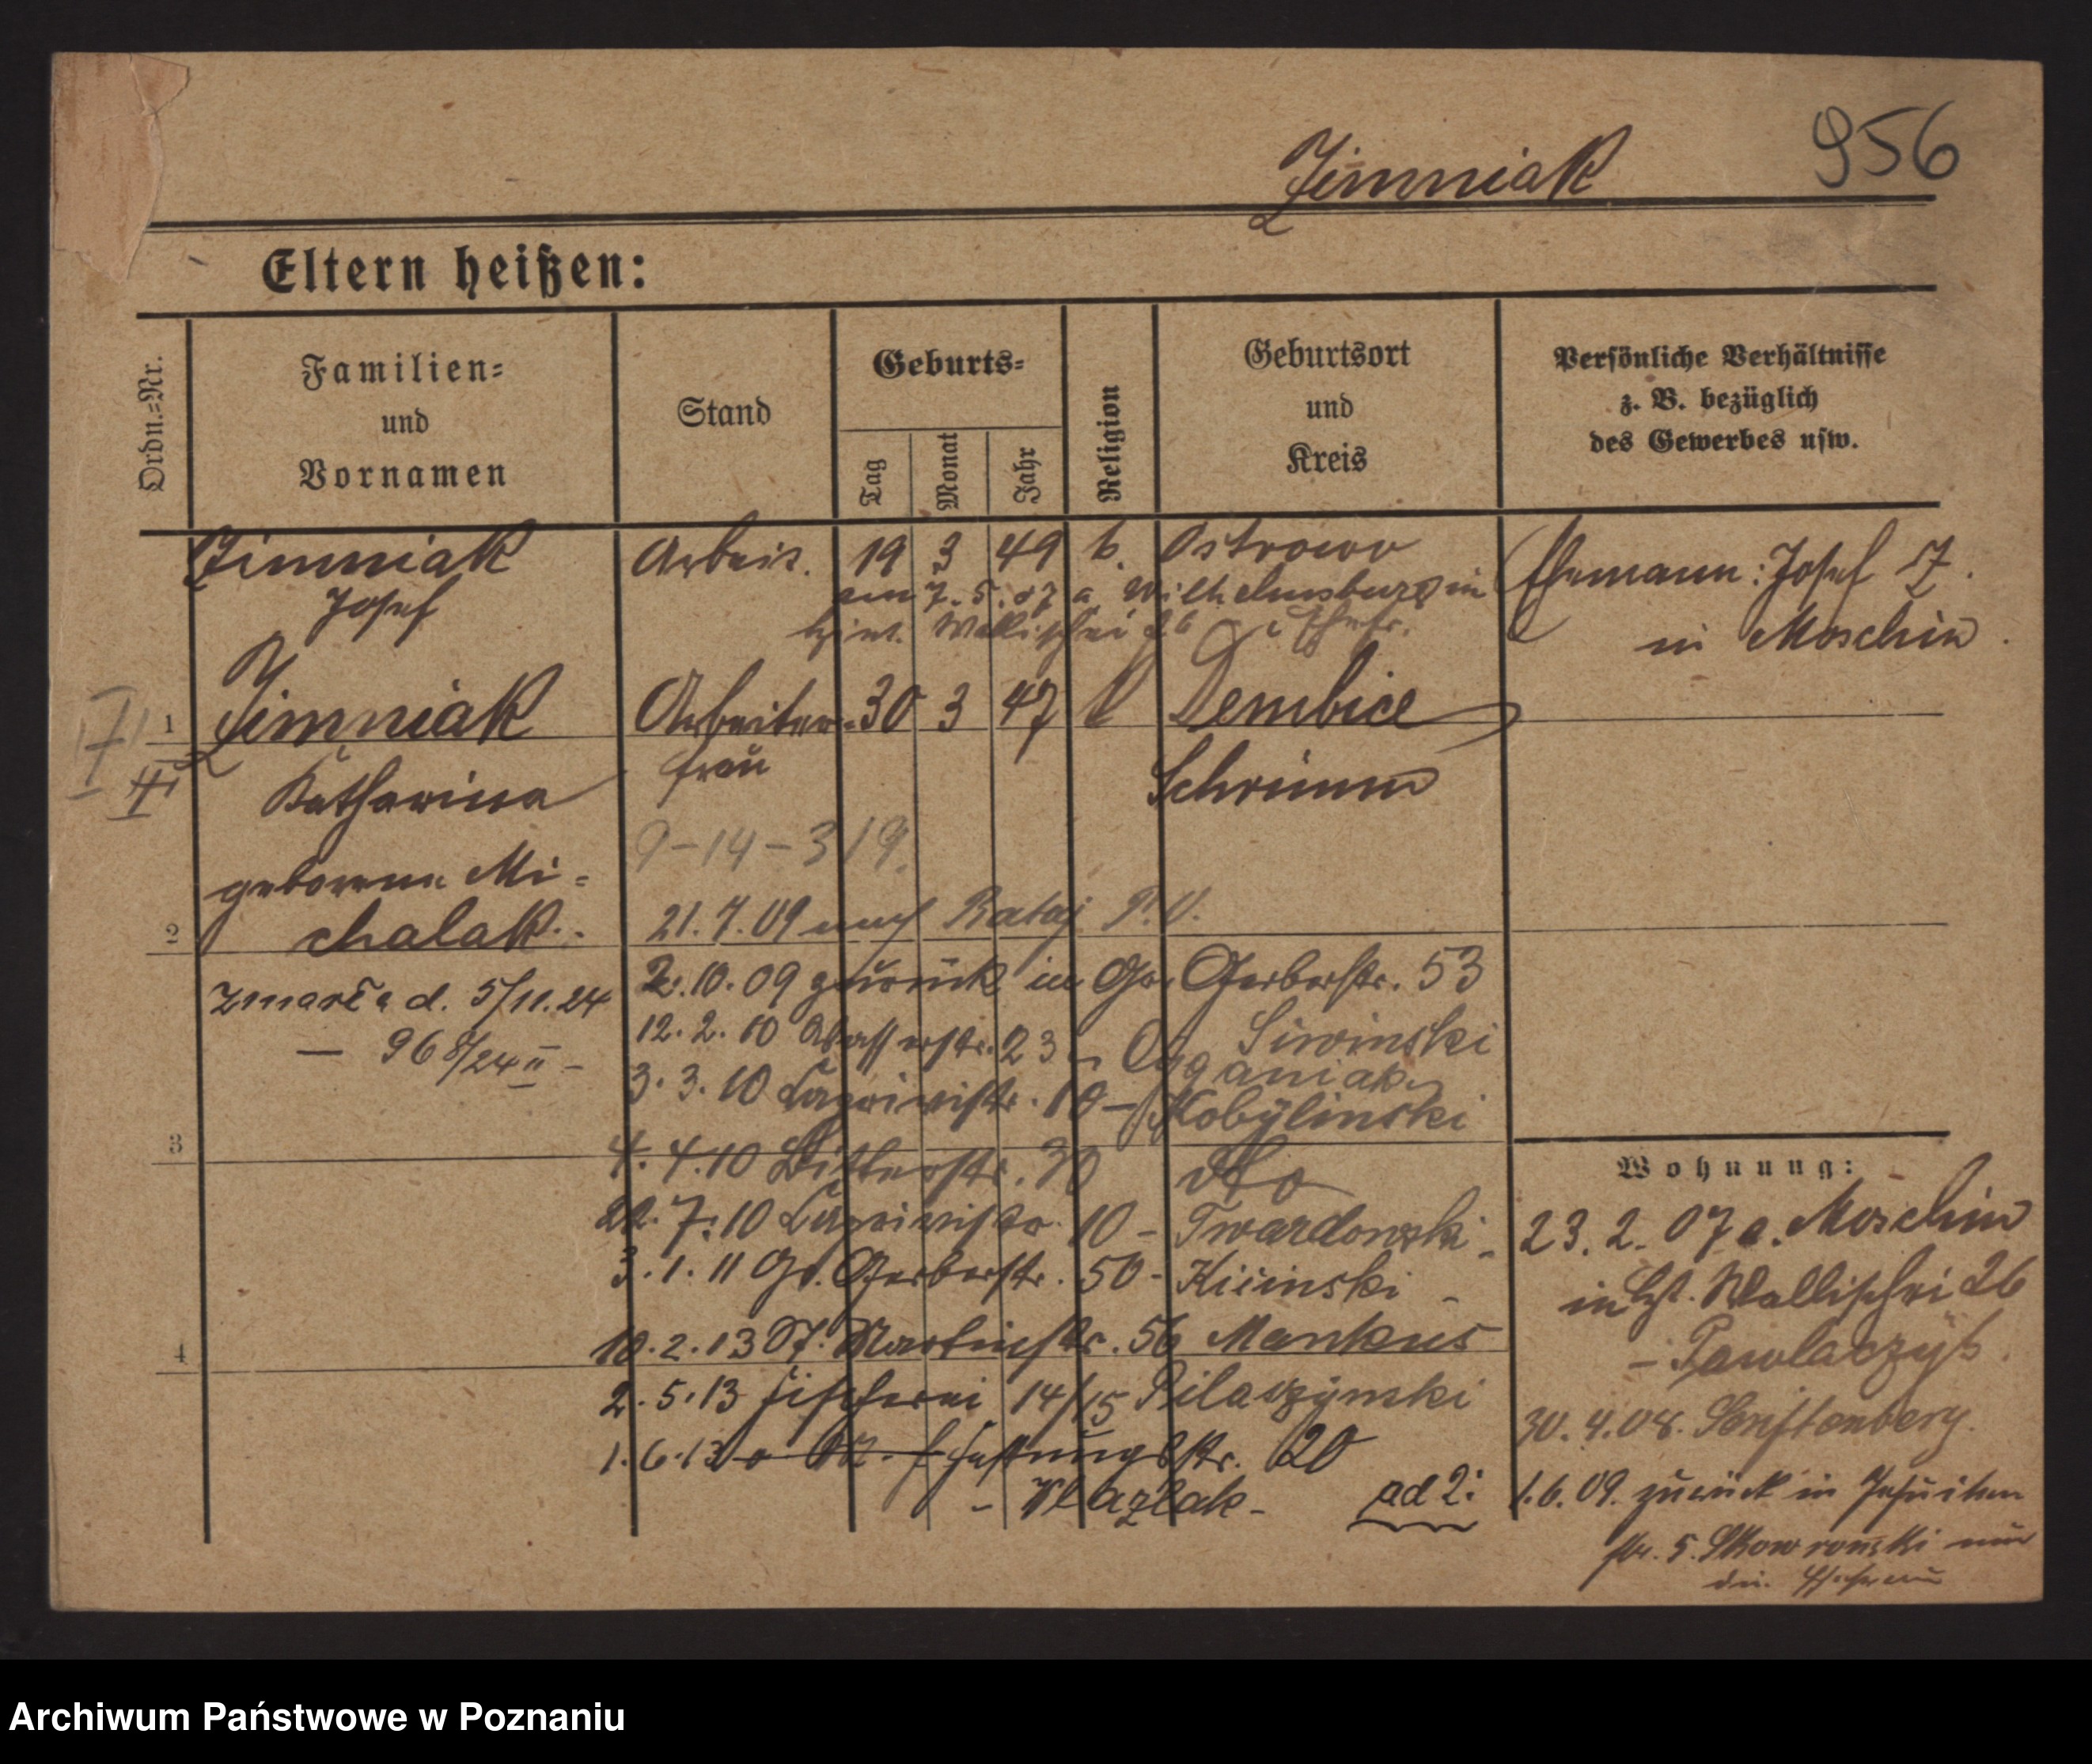 956
Zimniak
Eltern heißen:
Ordn.=Nr.
Familien=
und
Vornamen
Stand
Geburts=
Tag
Monat
Jahr
Religion
Geburtsort
und
Kreis
Persönliche Verhältnisse
z. B. bezüglich
des Gewerbes usw.
Zimniak
Josef
Arbeit. 19 3 49 k. Ostrowo
am 7.5.07 a Wilhelmsburg in
Wallischei 26
Ehemann: Josef Z.
in Moschin.
1
Zimniak
Katharina
geborene Mi=
chalak.
Arbeiter=
frau
30 3 47 k Dembice
Schrimm
9-14-319.
2
21.7.09 nach Rataj P.O.
zmarła d. 5/11.24
— 968/24 II —
2.10.09 zurück in Gr. Gerberstr. 53
Siwinski
12.2.10 Wasserstr. 23
3.3.10 10 — Kobylinski
3
4.4.10 Bitterstr. 30 dto
22.7.10 10 - Twardowski -
3.1.11 Gr. Gerberstr. 50 - Kicinski -
4
10.2.13 St. Martinstr. 56 Mankus
2.5.13 Fischerei 14/15 Pilaczynski
1.6.13 Festungsstr. 20
- Wlazlak -
ad 2:
Wohnung:
23.2.07 a. Moschin
in Wallischei 26
- Pawlaczyk.
30.4.08. Senftenberg.
1.6.09. zurück in Jesuiten
str. 5. Skowronski nur
die Ehefrau
Archiwum Państwowe w Poznaniu